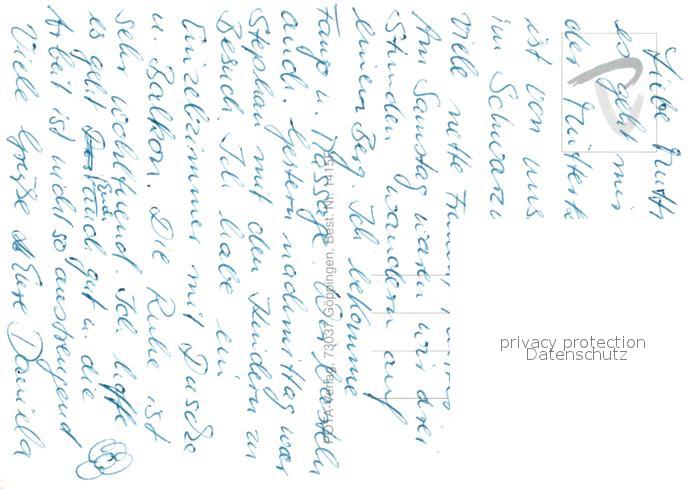 Liebe Mutti
es geht mir
der Mütterk
ist von uns
im Schwarz
Viele nette
Am Samstag waren wir drei
Stunden wandern auf
einen Berg. Ich bekomme
Tango u. Massage. Wir basteln
auch. Gestern nachmittag war
Stephan mit den Kindern zu
Besuch. Ich habe ein
Einzelzimmer mit Dusche
u. Balkon. Die Ruhe ist
sehr wohltuend. Ich hoffe
es geht Euch auch gut u. die
Arbeit ist nicht so anstrengend
Viele Grüße Eure Daniela
PDTA-Verlag, 73037 Göppingen, Best. Nr. 14155
privacy protection
Datenschutz